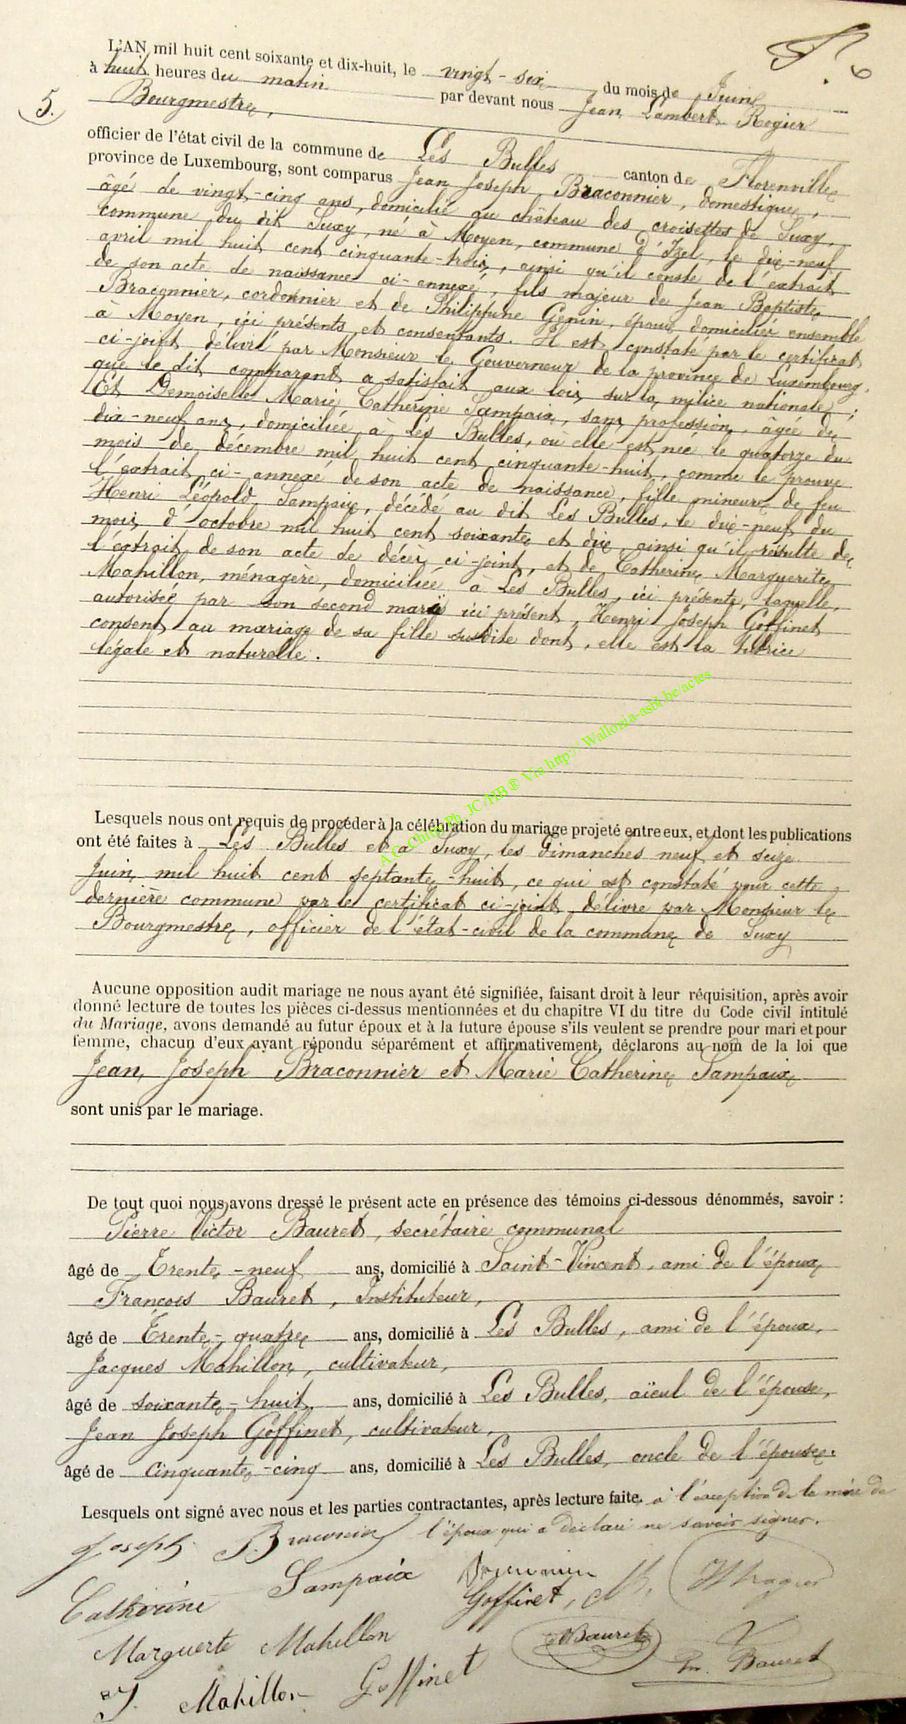 L'AN mil huit cent soixante et dix-huit, le vingt-six du mois de Juin
à huit heures du matin par devant nous Jean Lambert Rogier
5.
Bourgmestre,
officier de l'état civil de la commune de Les Bulles canton de Florenville
province de Luxembourg, sont comparus Jean Joseph Braconnier, domestique,
âgé de vingt-cinq ans, domicilié au château des croisettes de Suxy,
commune du dit Suxy, né à Moyen, commune d'Izel, le dix-neuf
avril mil huit cent cinquante-trois, ainsi qu'il conste de l'extrait
de son acte de naissance ci-annexé, fils majeur de Jean Baptiste
Braconnier, cordonnier et de Philippine Genin, époux domiciliés ensemble
à Moyen, ici présents et consentants. Il est constaté par le certificat
ci-joint délivré par Monsieur le Gouverneur de la province de Luxembourg,
que le dit comparant a satisfait aux lois sur la milice nationale;
Et Demoiselle Marie Catherine Sampaix, sans profession, âgée de
dix-neuf ans, domiciliée à Les Bulles, où elle est née le quatorze du
mois de décembre mil huit cent cinquante-huit, comme le prouve
l'extrait ci-annexé de son acte de naissance, fille mineure de feu
Henri Léopold Sampaix, décédé au dit Les Bulles, le dix-neuf du
mois d'octobre mil huit cent soixante et dix, ainsi qu'il résulte de
l'extrait de son acte de décès ci-joint, et de Catherine Marguerite
Mahillon, ménagère, domiciliée à Les Bulles, ici présente, laquelle,
autorisée par son second mari ici présent, Henri Joseph Goffinet
consent au mariage de sa fille susdite dont, elle est la tutrice
légale et naturelle.
A.C. Chiny JC/HB ® Via http://Wallonia-asbl.be/actes
Lesquels nous ont requis de procéder à la célébration du mariage projeté entre eux, et dont les publications
ont été faites à Les Bulles et à Suxy, les dimanches neuf et seize
Juin mil huit cent septante-huit, ce qui est constaté pour cette
dernière commune par le certificat ci-joint délivré par Monsieur le
Bourgmestre, officier de l'état-civil de la commune de Suxy
Aucune opposition audit mariage ne nous ayant été signifiée, faisant droit à leur réquisition, après avoir
donné lecture de toutes les pièces ci-dessus mentionnées et du chapitre VI du titre du Code civil intitulé
du Mariage, avons demandé au futur époux et à la future épouse s'ils veulent se prendre pour mari et pour
femme, chacun d'eux ayant répondu séparément et affirmativement, déclarons au nom de la loi que
Jean Joseph Braconnier et Marie Catherine Sampaix
sont unis par le mariage.
De tout quoi nous avons dressé le présent acte en présence des témoins ci-dessous dénommés, savoir :
Pierre Victor Bauret, secrétaire communal
âgé de Trente-neuf ans, domicilié à Saint-Vincent, ami de l'époux,
François Bauret, Instituteur,
âgé de Trente-quatre ans, domicilié à Les Bulles, ami de l'époux,
Jacques Mahillon, cultivateur,
âgé de soixante-huit ans, domicilié à Les Bulles, aïeul de l'épouse,
Jean Joseph Goffinet, cultivateur,
âgé de cinquante-cinq ans, domicilié à Les Bulles, oncle de l'épouse.
Lesquels ont signé avec nous et les parties contractantes, après lecture faite, à l'exception de la mère de
l'époux qui a déclaré ne savoir signer.
Joseph
Catherine Sampaix
Goffinet,
Marguerte Mahillon Bauret
J. Mahillon Goffinet Bauret